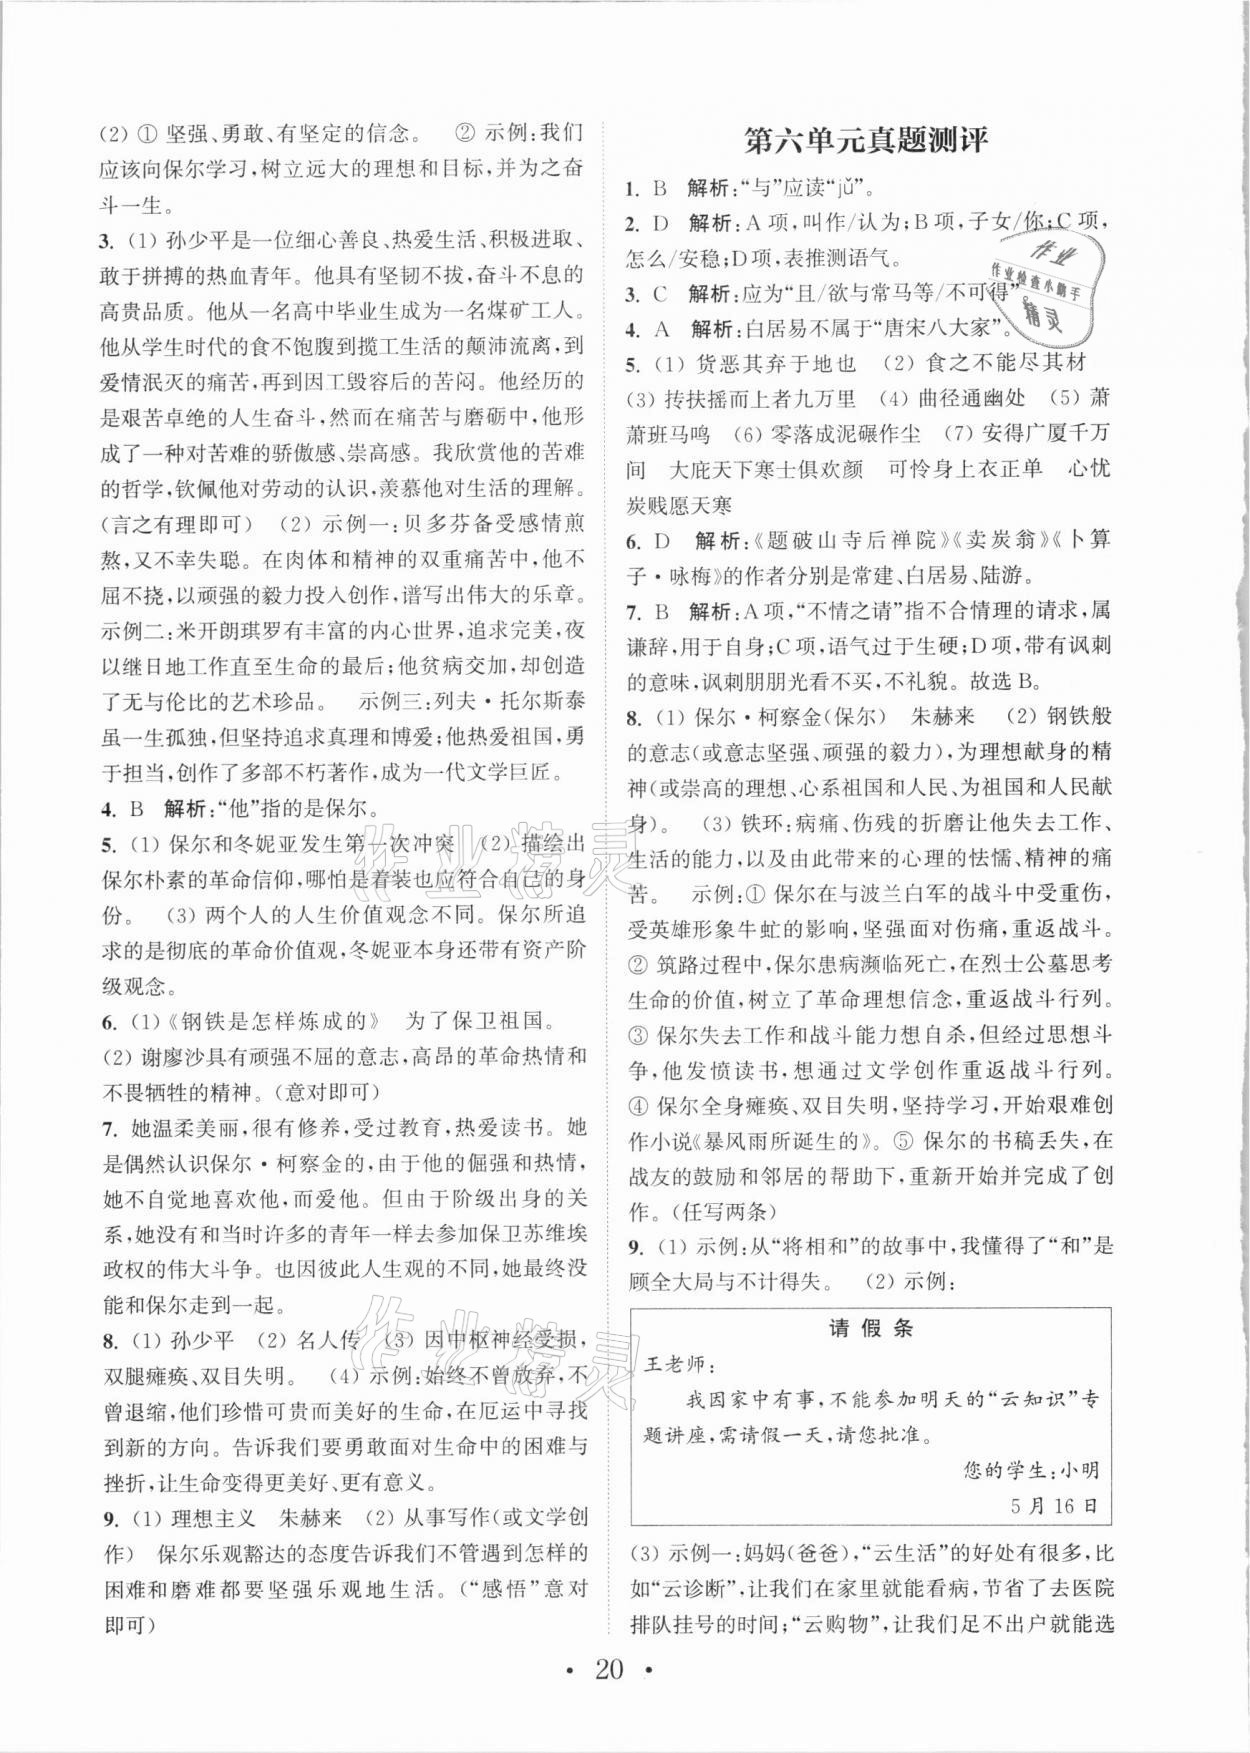 (2) ① 坚强、勇敢、有坚定的信念。 ② 示例:我们
应该向保尔学习,树立远大的理想和目标,并为之奋
斗一生。
3. (1) 孙少平是一位细心善良、热爱生活、积极进取、
敢于拼搏的热血青年。他具有坚韧不拔,奋斗不息的
高贵品质。他从一名高中毕业生成为一名煤矿工人。
他从学生时代的食不饱腹到揽工生活的颠沛流离,到
爱情泯灭的痛苦,再到因工毁容后的苦闷。他经历的
是艰苦卓绝的人生奋斗,然而在痛苦与磨砺中,他形
成了一种对苦难的骄傲感、崇高感。我欣赏他的苦难
的哲学,钦佩他对劳动的认识,羡慕他对生活的理解。
(言之有理即可) (2) 示例一:贝多芬备受感情煎
熬,又不幸失聪。在肉体和精神的双重痛苦中,他不
屈不挠,以顽强的毅力投入创作,谱写出伟大的乐章。
示例二:米开朗琪罗有丰富的内心世界,追求完美,夜
以继日地工作直至生命的最后;他贫病交加,却创造
了无与伦比的艺术珍品。 示例三:列夫·托尔斯泰
虽一生孤独,但坚持追求真理和博爱;他热爱祖国,勇
于担当,创作了多部不朽著作,成为一代文学巨匠。
4. B 解析:“他”指的是保尔。
5. (1) 保尔和冬妮亚发生第一次冲突 (2) 描绘出
保尔朴素的革命信仰,哪怕是着装也应符合自己的身
份。 (3) 两个人的人生价值观念不同。保尔所追
求的是彻底的革命价值观,冬妮亚本身还带有资产阶
级观念。
6. (1)《钢铁是怎样炼成的》 为了保卫祖国。
(2) 谢廖沙具有顽强不屈的意志,高昂的革命热情和
不畏牺牲的精神。(意对即可)
7. 她温柔美丽,很有修养,受过教育,热爱读书。她
是偶然认识保尔·柯察金的,由于他的倔强和热情,
她不自觉地喜欢他,而爱他。但由于阶级出身的关
系,她没有和当时许多的青年一样去参加保卫苏维埃
政权的伟大斗争。也因彼此人生观的不同,她最终没
能和保尔走到一起。
8. (1) 孙少平 (2) 名人传 (3) 因中枢神经受损,
双腿瘫痪、双目失明。 (4) 示例:始终不曾放弃,不
曾退缩,他们珍惜可贵而美好的生命,在厄运中寻找
到新的方向。告诉我们要勇敢面对生命中的困难与
挫折,让生命变得更美好、更有意义。
9. (1) 理想主义 朱赫来 (2) 从事写作(或文学创
作) 保尔乐观豁达的态度告诉我们不管遇到怎样的
困难和磨难都要坚强乐观地生活。(“感悟”意对
即可)
第六单元真题测评
1. B 解析:“与”应读“jǔ”。
2. D 解析:A 项,叫作/认为;B 项,子女/你;C 项,
怎么/安稳;D 项,表推测语气。
3. C 解析:应为“且/欲与常马等/不可得”
4. A 解析:白居易不属于“唐宋八大家”。
5. (1) 货恶其弃于地也 (2) 食之不能尽其材
(3) 抟扶摇而上者九万里 (4) 曲径通幽处 (5) 萧
萧班马鸣 (6) 零落成泥碾作尘 (7) 安得广厦千万
间 大庇天下寒士俱欢颜 可怜身上衣正单 心忧
炭贱愿天寒
6. D 解析:《题破山寺后禅院》《卖炭翁》《卜算
子·咏梅》的作者分别是常建、白居易、陆游。
7. B 解析:A 项,“不情之请”指不合情理的请求,属
谦辞,用于自身;C 项,语气过于生硬;D 项,带有讽刺
的意味,讽刺朋朋光看不买,不礼貌。故选 B。
8. (1) 保尔·柯察金(保尔) 朱赫来 (2) 钢铁般
的意志(或意志坚强、顽强的毅力),为理想献身的精
神(或崇高的理想、心系祖国和人民、为祖国和人民献
身)。 (3) 铁环:病痛、伤残的折磨让他失去工作、
生活的能力,以及由此带来的心理的怯懦、精神的痛
苦。 示例:① 保尔在与波兰白军的战斗中受重伤,
受英雄形象牛虻的影响,坚强面对伤痛,重返战斗。
② 筑路过程中,保尔患病濒临死亡,在烈士公墓思考
生命的价值,树立了革命理想信念,重返战斗行列。
③ 保尔失去工作和战斗能力想自杀,但经过思想斗
争,他发愤读书,想通过文学创作重返战斗行列。
④ 保尔全身瘫痪、双目失明,坚持学习,开始艰难创
作小说《暴风雨所诞生的》。⑤ 保尔的书稿丢失,在
战友的鼓励和邻居的帮助下,重新开始并完成了创
作。(任写两条)
9. (1) 示例:从“将相和”的故事中,我懂得了“和”是
顾全大局与不计得失。 (2) 示例:
请假条
王老师:
我因家中有事,不能参加明天的“云知识”专
题讲座,需请假一天,请您批准。
您的学生:小明
5 月 16 日
(3) 示例一:妈妈(爸爸),“云生活”的好处有很多,比
如“云诊断”,让我们在家里就能看病,节省了去医院
排队挂号的时间;“云购物”,让我们足不出户就能选
· 20 ·
作业
作业检查小助手
精灵
作业精灵
作业精灵